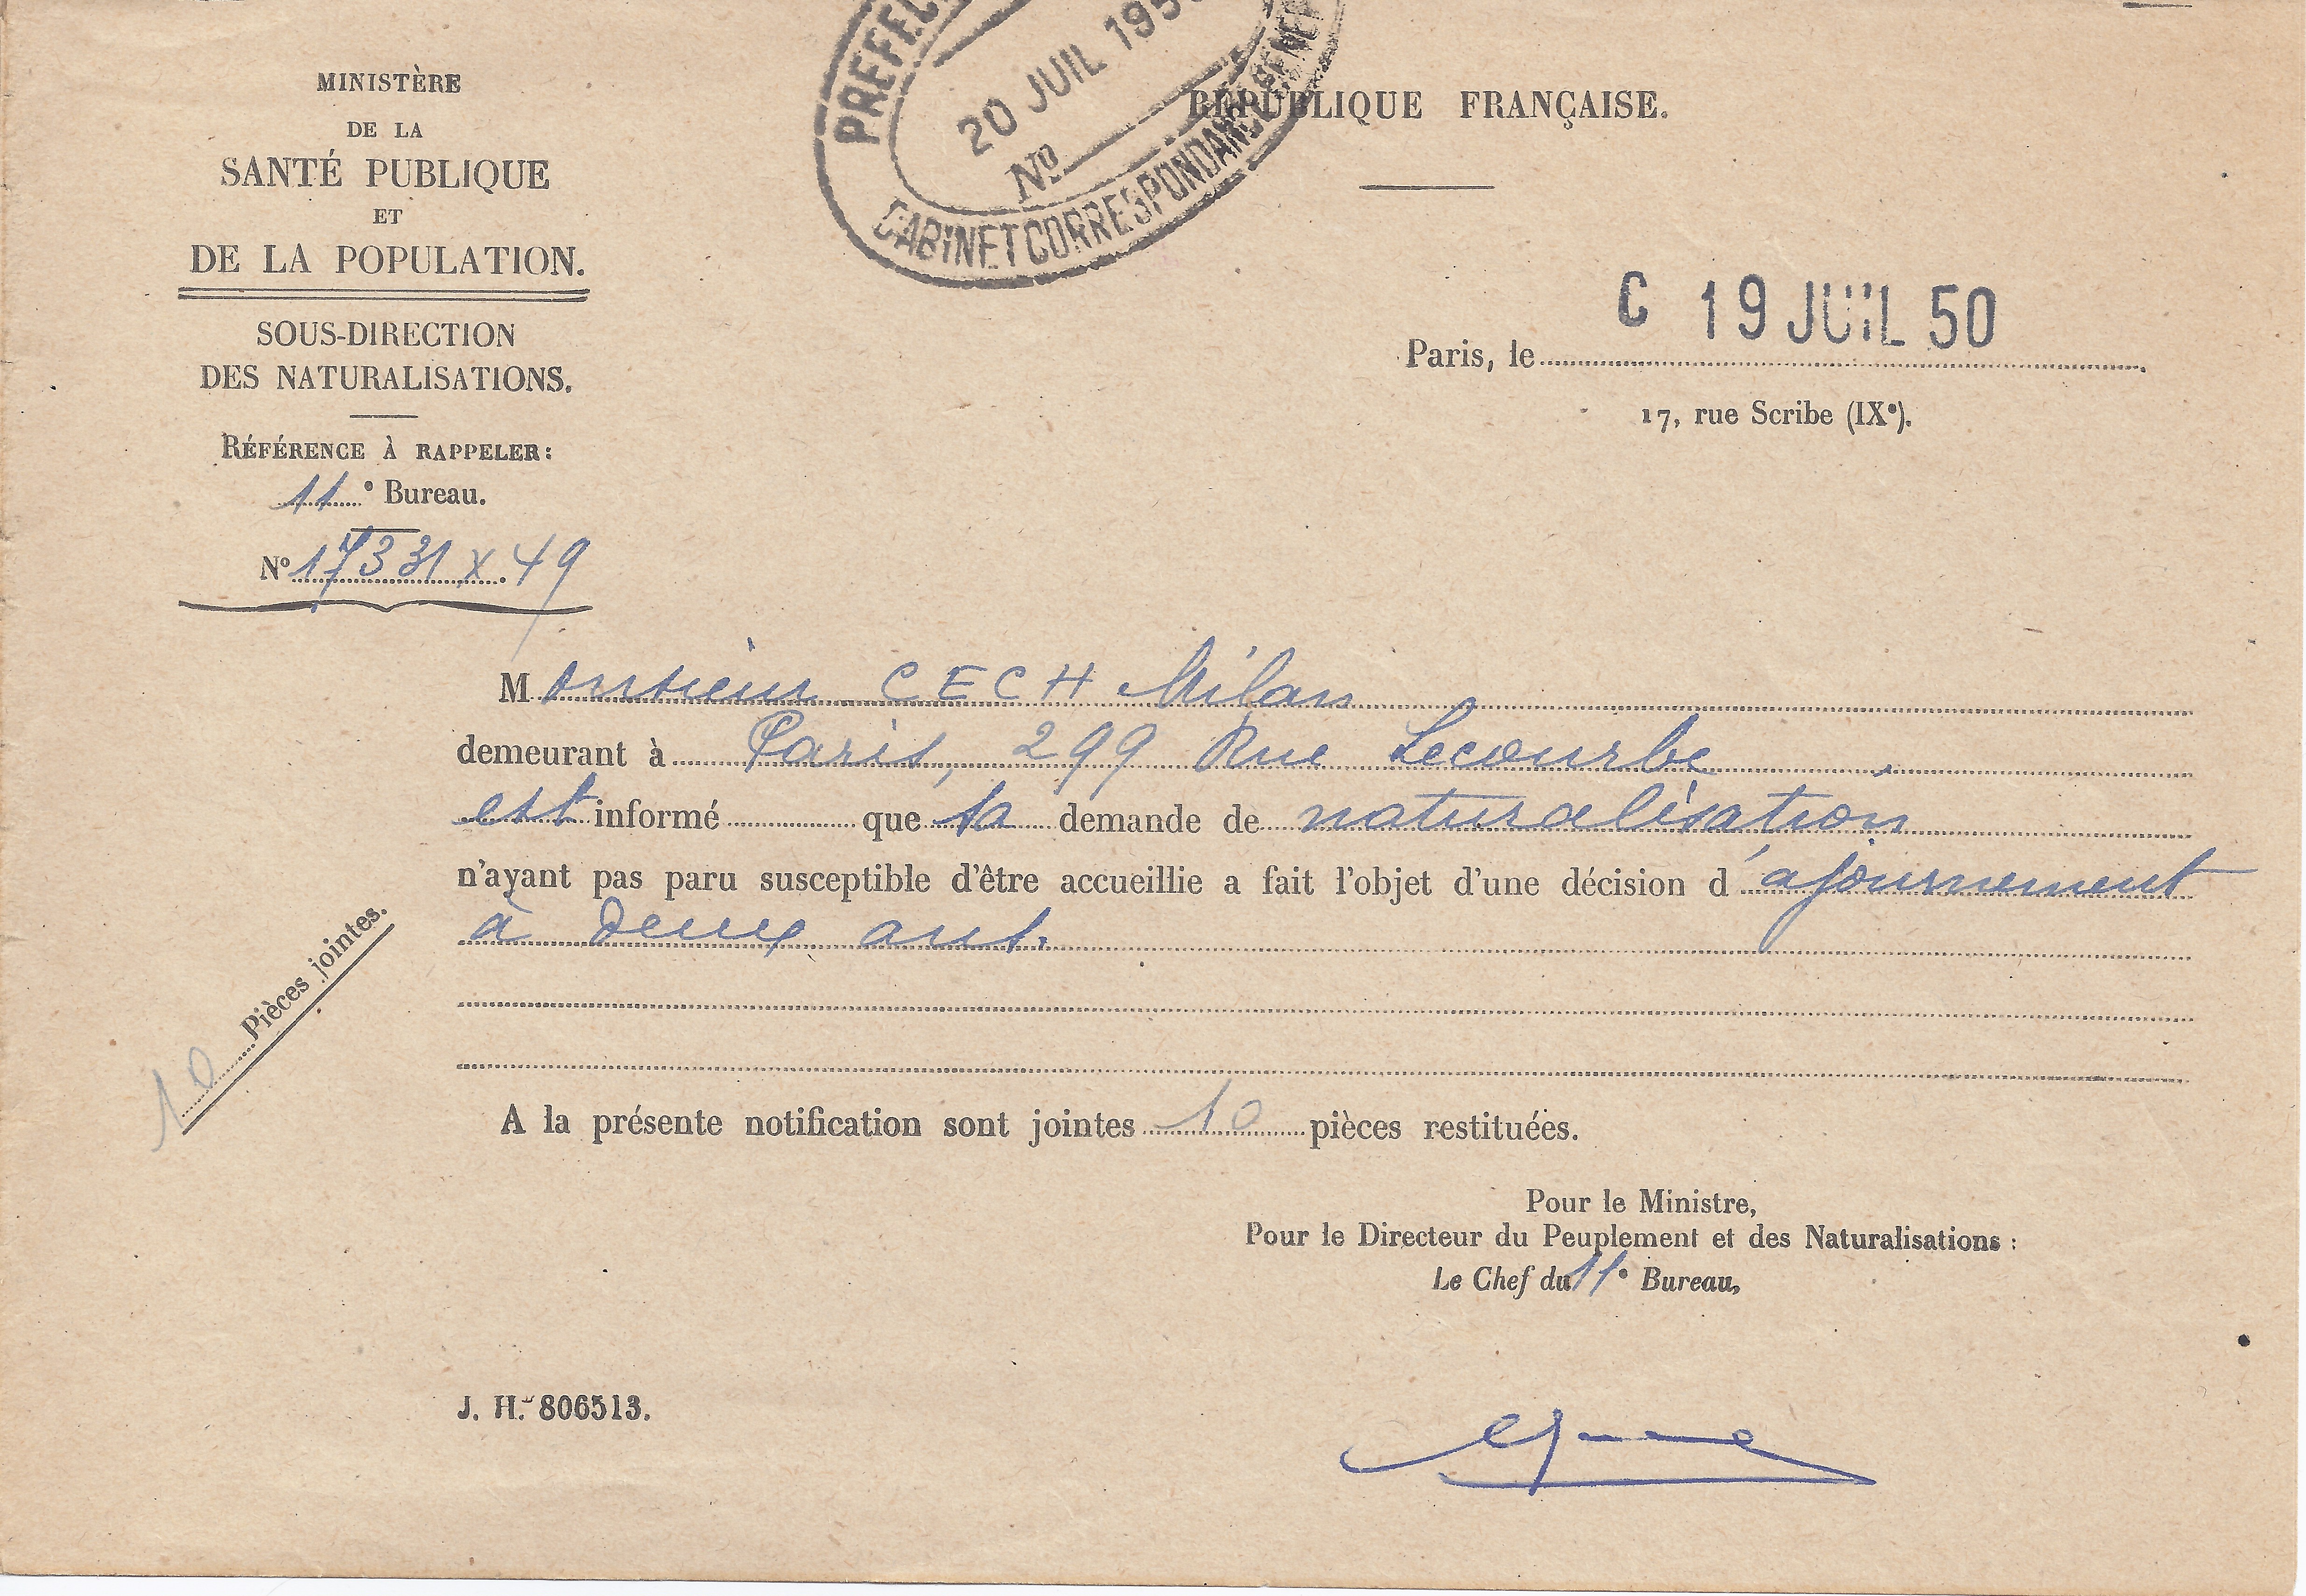 MINISTÈRE
DE LA
SANTÉ PUBLIQUE
ET
DE LA POPULATION.
SOUS-DIRECTION
DES NATURALISATIONS.
RÉFÉRENCE À RAPPELER:
11e Bureau.
N° 17331 X 49
20 JUIL 195
N°
CABINET CORRESPONDANCE
RÉPUBLIQUE FRANÇAISE.
C 19 JUIL 50
Paris, le
17, rue Scribe (IXe).
Monsieur CECH Milan
demeurant à Paris, 299 Rue Lecourbe
est informé que sa demande de naturalisation
n'ayant pas paru susceptible d'être accueillie a fait l'objet d'une décision d'ajournement
à deux ans.
10 Pièces jointes.
A la présente notification sont jointes 10 pièces restituées.
Pour le Ministre,
Pour le Directeur du Peuplement et des Naturalisations :
Le Chef du 11e Bureau,
J. H. 806513.